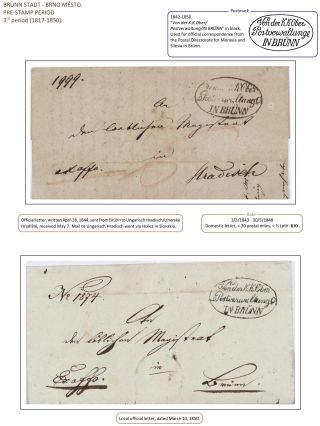 BRÜNN STADT - BRNO MĚSTO.
PRE-STAMP PERIOD
3rd period (1817-1850).
Postmark
1842-1850.
"Von der K.K.Ober/
Postverwaltung/IN BRÜNN" in black.
Used for official correspondence from
the Postal Directorate for Moravia and
Silesia in Brünn.
Von der K.K.Ober
Postverwaltung
IN BRÜNN
1999.
An
den löblichen Magistrat
in
ex offo.
Hradisch
IN BRÜNN
Official letter, written April 28, 1844, sent from Brünn to Ungarisch Hradisch/Uherské
Hradiště, received May 7. Mail to Ungarisch Hradisch went via Holicz in Slovakia.
Rate
1/2/1843 - 30/5/1848
Domestic letter, < 20 postal miles, < ½ Loth: 6 Kr.
No 1874.
Von der K.K.Ober
Postverwaltung
IN BRÜNN
An
den löblichen Magistrat
in
Ex offo.
Brünn.
Local official letter, dated March 10, 1850.